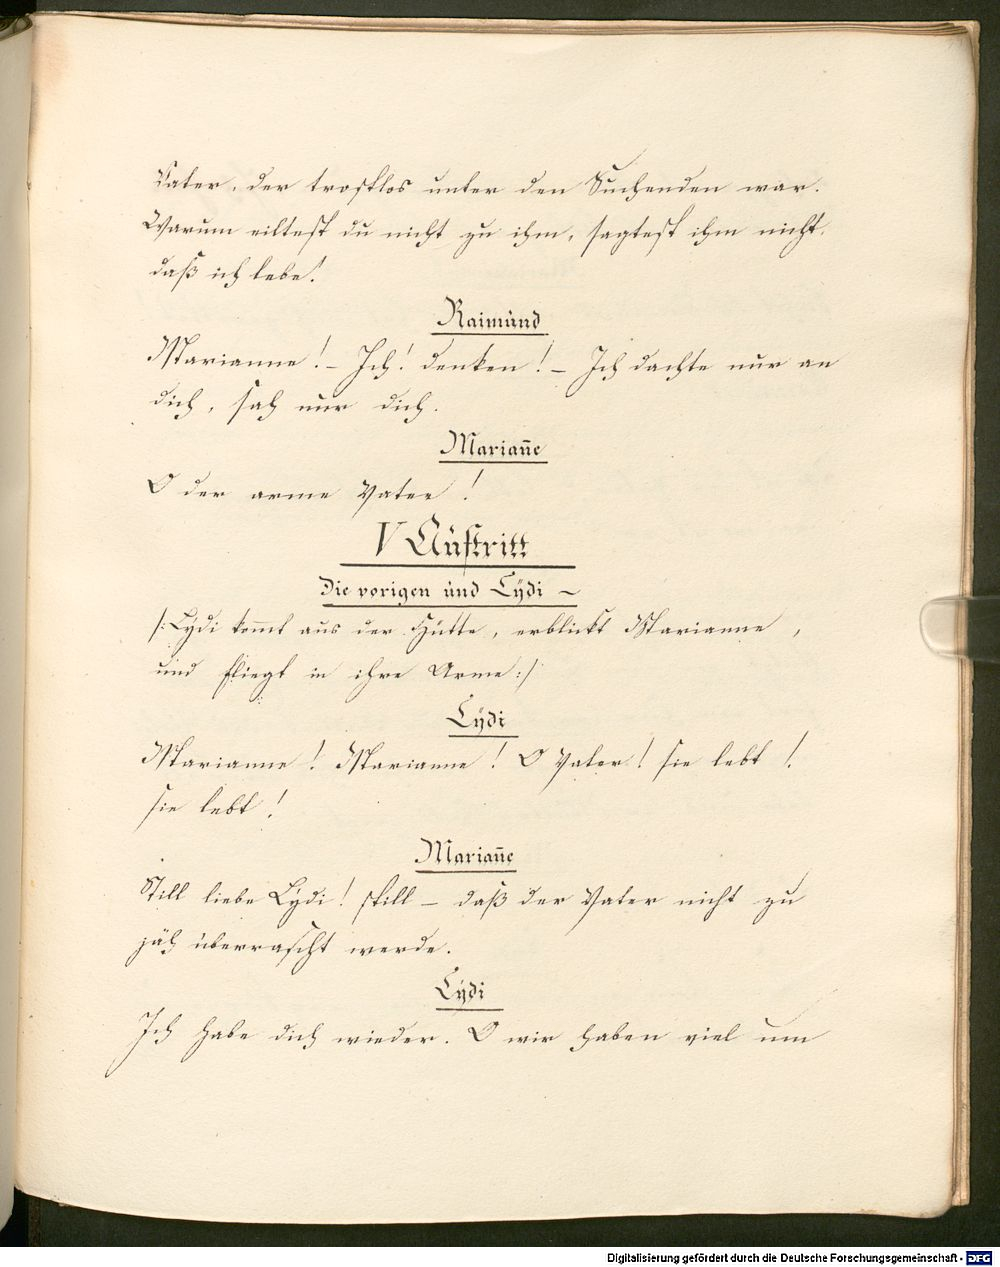 Vater, der trostlos unter den Suchenden war.
Warum eiltest du nicht zu ihm, sagtest ihm nicht,
daß ich lebe!
Raimund
Marianne! – Ich! denken! – Ich dachte nur an
dich, sah nur dich.
Mariañe
O der arme Vater!
V Auftritt
Die vorigen und Lÿdi ~
/: Lÿdi kom̄t aus der Hütte, erblickt Marianne,
und fliegt in ihre Arme :/
Lÿdi
Marianne! Marianne! O Vater! sie lebt!
sie lebt!
Mariañe
Still liebe Lÿdi! still – daß der Vater nicht zu
jäh überrascht werde.
Lÿdi
Ich habe dich wieder. O wir haben viel um
Digitalisierung gefördert durch die Deutsche Forschungsgemeinschaft - DFG